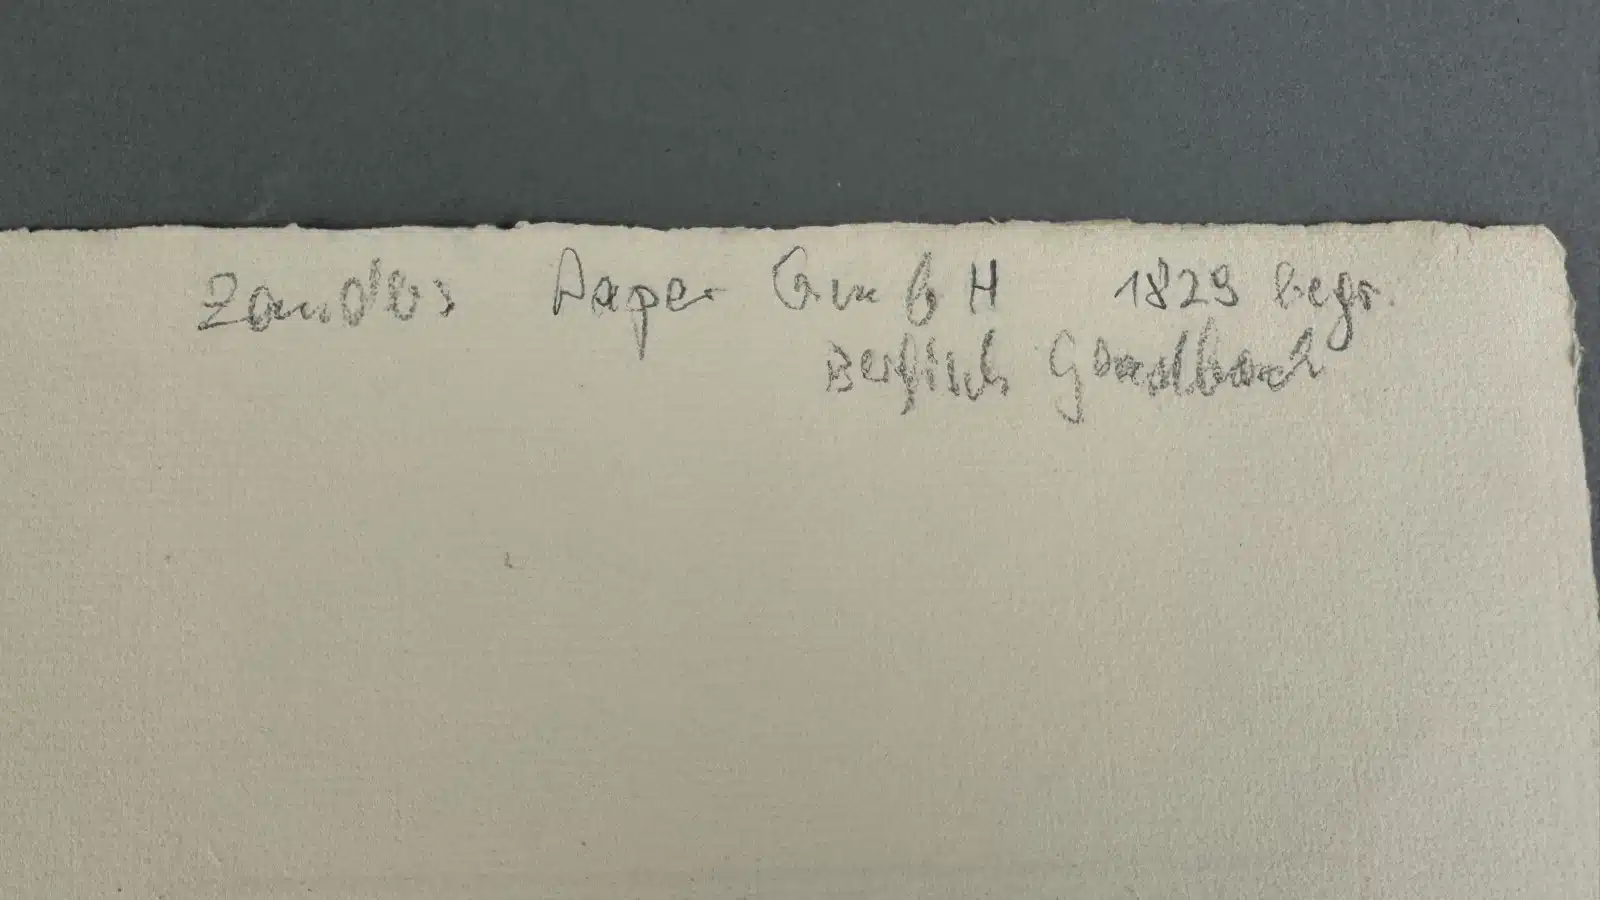 Zanders Paper GmbH 1829 begr.
Bergisch Gladbach